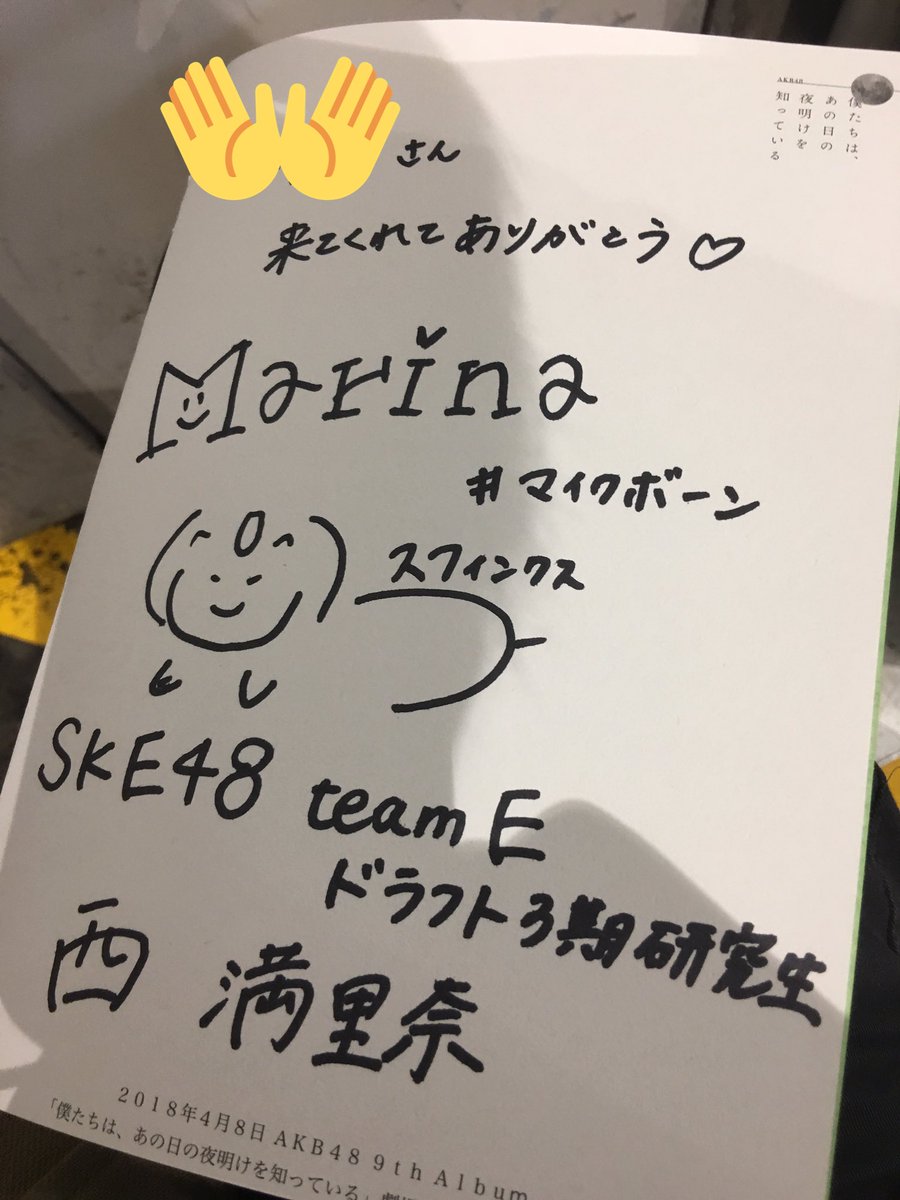 AKB48
僕たちは、
あの日の
夜明けを
知っている
さん
来てくれてありがとう♡
Marina
#マイクボーン
スフィンクス
SKE48 team E
ドラフト3期研究生
西 満里奈
2018年4月8日 AKB48 9th Album
「僕たちは、あの日の夜明けを知っている」